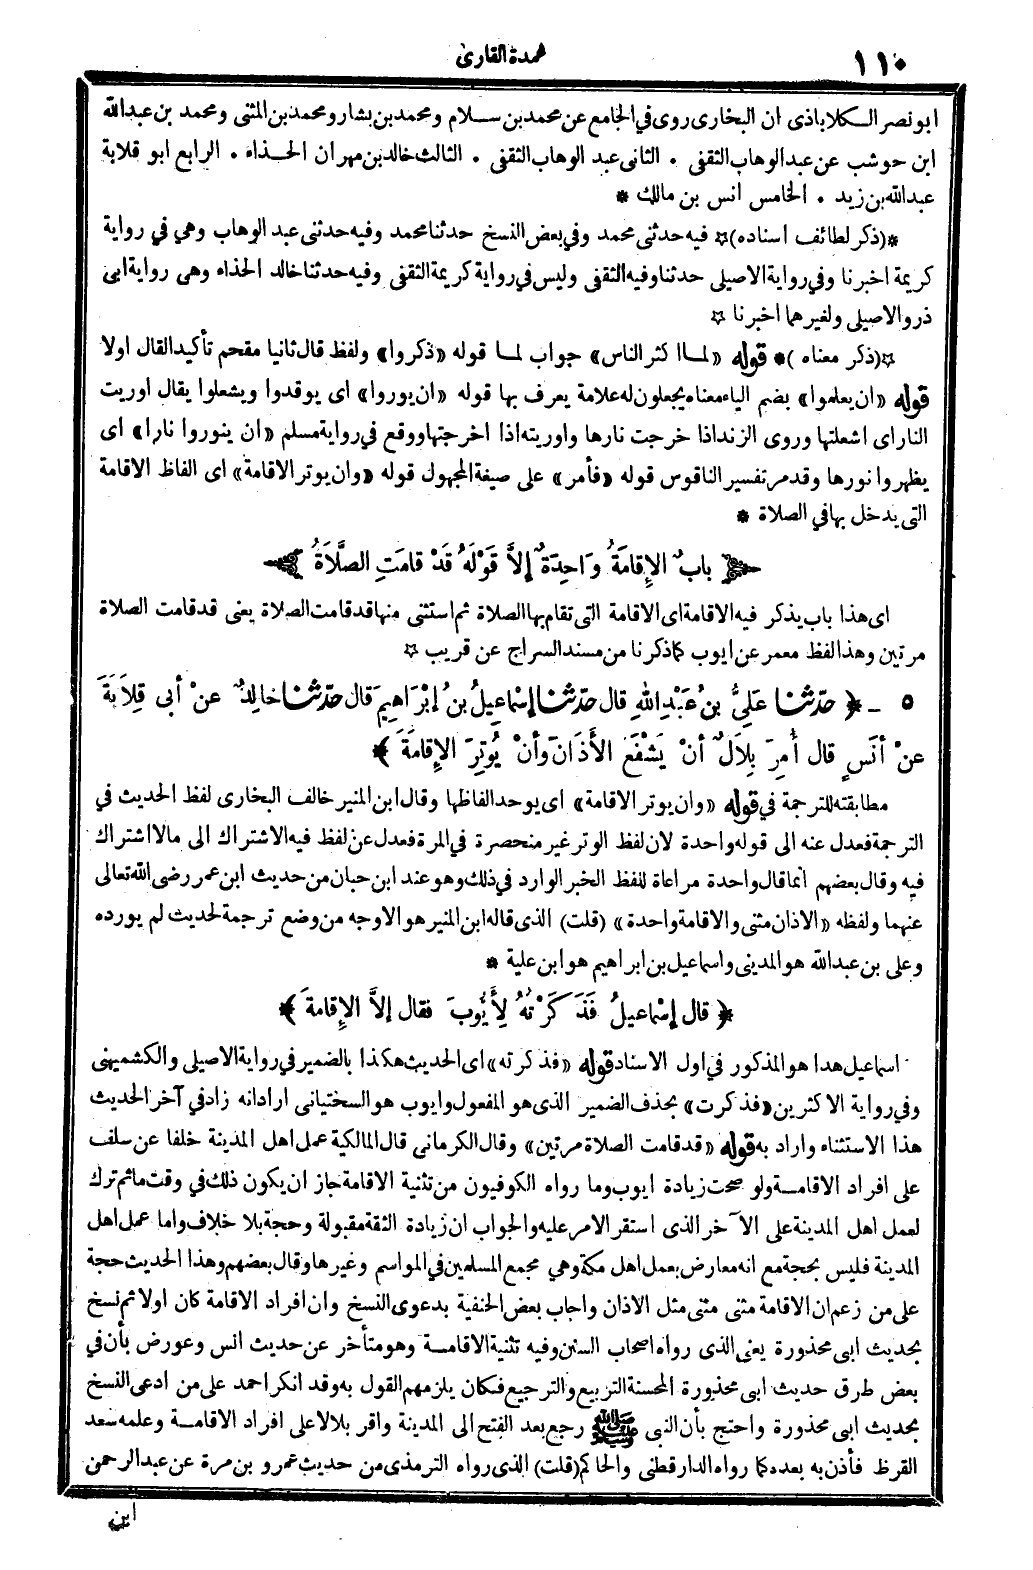 ١١٠
عمدة القارئ
ابو نصر الكلاباذى ان البخارى روى في الجامع عن محمد بن سلام ومحمد بن بشار ومحمد بن المثنى ومحمد بن عبدالله
ابن حوشب عن عبد الوهاب الثقفى . الثانى عبد الوهاب الثقفى . الثالث خالد بن مهران الحذاء . الرابع ابو قلابة
عبدالله بن زيد . الخامس انس بن مالك *
*(ذكر لطائف اسناده)* فيه حدثنى محمد وفي بعض النسخ حدثنا محمد وفيه حدثنى عبد الوهاب وهي في رواية
كريمة اخبرنا وفي رواية الاصيلى حدثنا وفيه الثقفى وليس في رواية كريمة الثقفى وفيه حدثنا خالد الحذاء وهى رواية ابى
ذر والاصيلى ولغيرهما اخبرنا *
*(ذكر معناه)* قوله «لما اكثر الناس» جواب لما قوله «ذكروا» ولفظ قال ثانيا مقحم تأكيد القال اولا
قوله «ان يعلموا» بضم الياء معناه يجعلون له علامة يعرف بها قوله «ان يوروا» اى يوقدوا ويشعلوا يقال اوريت
النار اى اشعلتها وروى الزند اذا خرجت نارها واوريته اذا اخرجتها ووقع في رواية مسلم «ان ينوروا نارا» اى
يظهروا نورها وقد مر تفسير الناقوس قوله «فأمر» على صيغة المجهول قوله «وان يوتر الاقامة» اى الفاظ الاقامة
التى يدخل بها في الصلاة *
بابٌ الإِقامَةُ وَاحِدَةٌ إلاَّ قَوْلَهُ قَدْ قامَتِ الصَّلاَةُ
اى هذا باب يذكر فيه الاقامة اى الاقامة التى تقام بها الصلاة ثم استثنى منها قد قامت الصلاة يعنى قد قامت الصلاة
مرتين وهذا لفظ معمر عن ايوب كما ذكرنا من مسند السراج عن قريب *
٥ ـ ﴿ حدّثنا عَلِيُّ بنُ عَبْدِ اللهِ قال حدّثنا إسْماعِيلُ بنُ إبْرَاهِيمَ قال حدّثنا خالِدٌ عنْ أبى قِلاَبَةَ
عنْ أنَسٍ قال أُمِرَ بِلاَلٌ أنْ يَشْفَعَ الأَذَانَ وأنْ يُوتِرَ الإِقامَةَ ﴾
مطابقته للترجمة في قوله «وان يوتر الاقامة» اى يوحد الفاظها وقال ابن المنير خالف البخارى لفظ الحديث في
الترجمة فعدل عنه الى قوله واحدة لان لفظ الوتر غير منحصرة في المرة فعدل عن لفظ فيه الاشتراك الى مالا اشتراك
فيه وقال بعضهم انما قال واحدة مراعاة للفظ الخبر الوارد في ذلك وهو عند ابن حبان من حديث ابن عمر رضى الله تعالى
عنهما ولفظه «الاذان مثنى والاقامة واحدة» (قلت) الذى قاله ابن المنير هو الاوجه من وضع ترجمة لحديث لم يورده
وعلى بن عبدالله هو المدينى واسماعيل بن ابراهيم هو ابن علية *
﴿ قال إسْماعِيلُ فَذَكَرْتُهُ لِأَيُّوبَ فقال إلاَّ الإِقامَةَ ﴾
اسماعيل هذا هو المذكور في اول الاسناد قوله «فذكرته» اى الحديث هكذا بالضمير في رواية الاصيلى والكشميهنى
وفي رواية الاكثرين «فذكرت» بحذف الضمير الذى هو المفعول وايوب هو السختيانى ارادانه زاد في آخر الحديث
هذا الاستثناء واراد به قوله «قد قامت الصلاة مرتين» وقال الكرمانى قال المالكية عمل اهل المدينة خلفا عن سلف
على افراد الاقامة ولو صحت زيادة ايوب وما رواه الكوفيون من تثنية الاقامة جاز ان يكون ذلك في وقت ما ثم ترك
لعمل اهل المدينة على الآخر الذى استقر الامر عليه والجواب ان زيادة الثقة مقبولة وحجة بلا خلاف واما عمل اهل
المدينة فليس بحجة مع انه معارض بعمل اهل مكة وهي مجمع المسلمين في المواسم وغيرها وقال بعضهم وهذا الحديث حجة
على من زعم ان الاقامة مثنى مثنى مثل الاذان واجاب بعض الحنفية بدعوى النسخ وان افراد الاقامة كان اولا ثم نسخ
بحديث ابى محذورة يعنى الذى رواه اصحاب السنن وفيه تثنية الاقامة وهو متأخر عن حديث انس وعورض بأن في
بعض طرق حديث ابى محذورة المحسنة التربيع والترجيع فكان يلزمهم القول به وقد انكر احمد على من ادعى النسخ
بحديث ابى محذورة واحتج بأن النبى ﷺ رجع بعد الفتح الى المدينة واقر بلالا على افراد الاقامة وعلمه سعد
القرظ فأذن به بعده كما رواه الدارقطنى والحاكم (قلت) الذى رواه الترمذى من حديث عمرو بن مرة عن عبد الرحمن
ابن